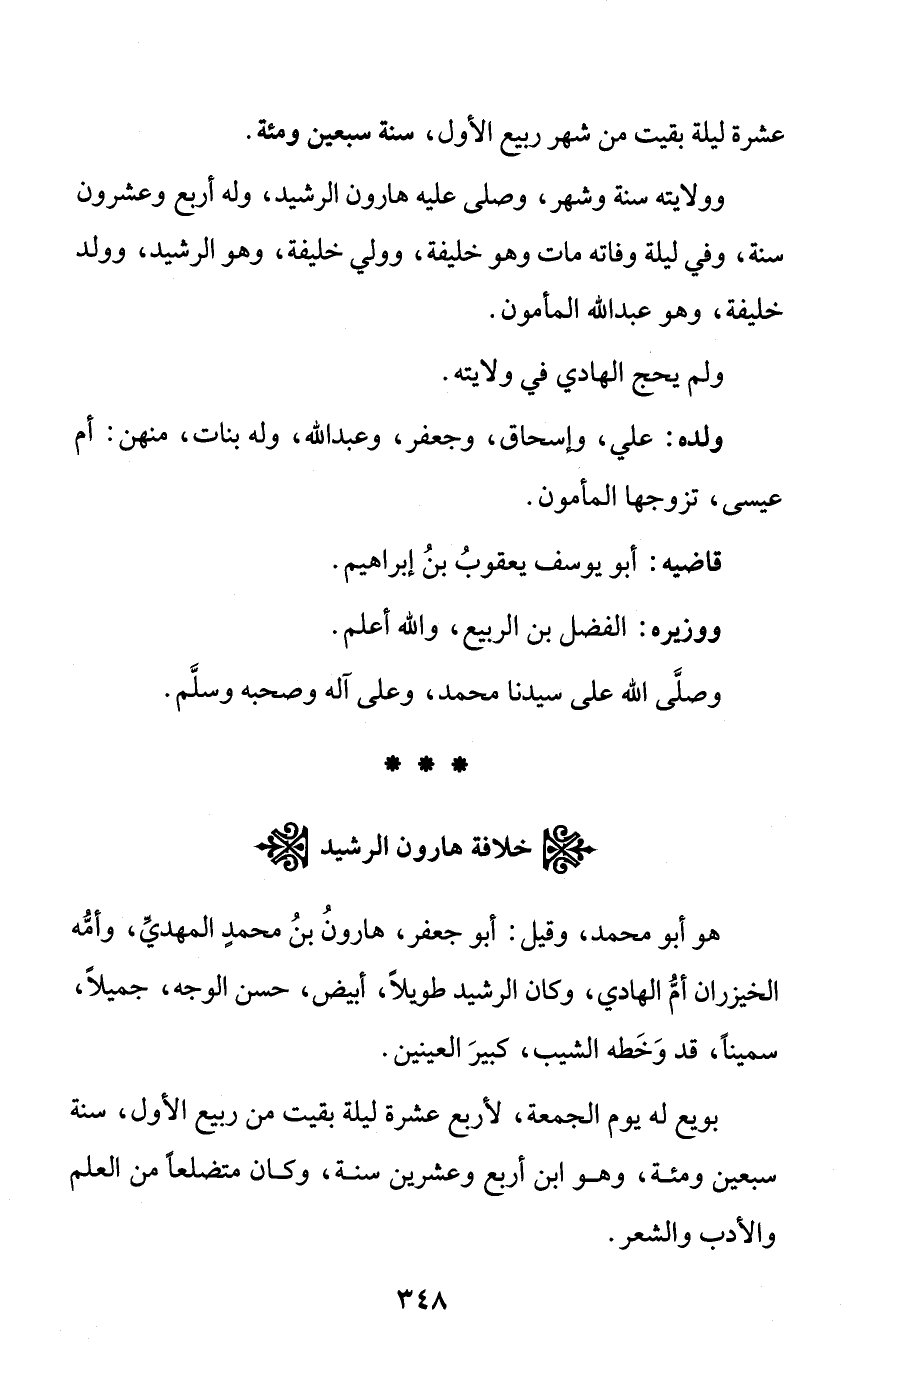 عشرة ليلة بقيت من شهر ربيع الأول، سنة سبعين ومئة.
وولايته سنة وشهر، وصلى عليه هارون الرشيد، وله أربع وعشرون
سنة، وفي ليلة وفاته مات وهو خليفة، وولي خليفة، وهو الرشيد، وولد
خليفة، وهو عبدالله المأمون.
ولم يحج الهادي في ولايته.
ولده: علي، وإسحاق، وجعفر، وعبدالله، وله بنات، منهن: أم
عيسى، تزوجها المأمون.
قاضيه: أبو يوسف يعقوبُ بنُ إبراهيم.
ووزيره: الفضل بن الربيع، والله أعلم.
وصلَّى الله على سيدنا محمد، وعلى آله وصحبه وسلَّم.
* * *
خلافة هارون الرشيد
هو أبو محمد، وقيل: أبو جعفر، هارونُ بنُ محمدٍ المهديِّ، وأمُّه
الخيزران أمُّ الهادي، وكان الرشيد طويلاً، أبيض، حسن الوجه، جميلاً،
سميناً، قد وَخَطه الشيب، كبيرَ العينين.
بويع له يوم الجمعة، لأربع عشرة ليلة بقيت من ربيع الأول، سنة
سبعين ومئـة، وهـو ابن أربع وعشرين سنـة، وكـان متضلعاً من العلم
والأدب والشعر.
٣٤٨